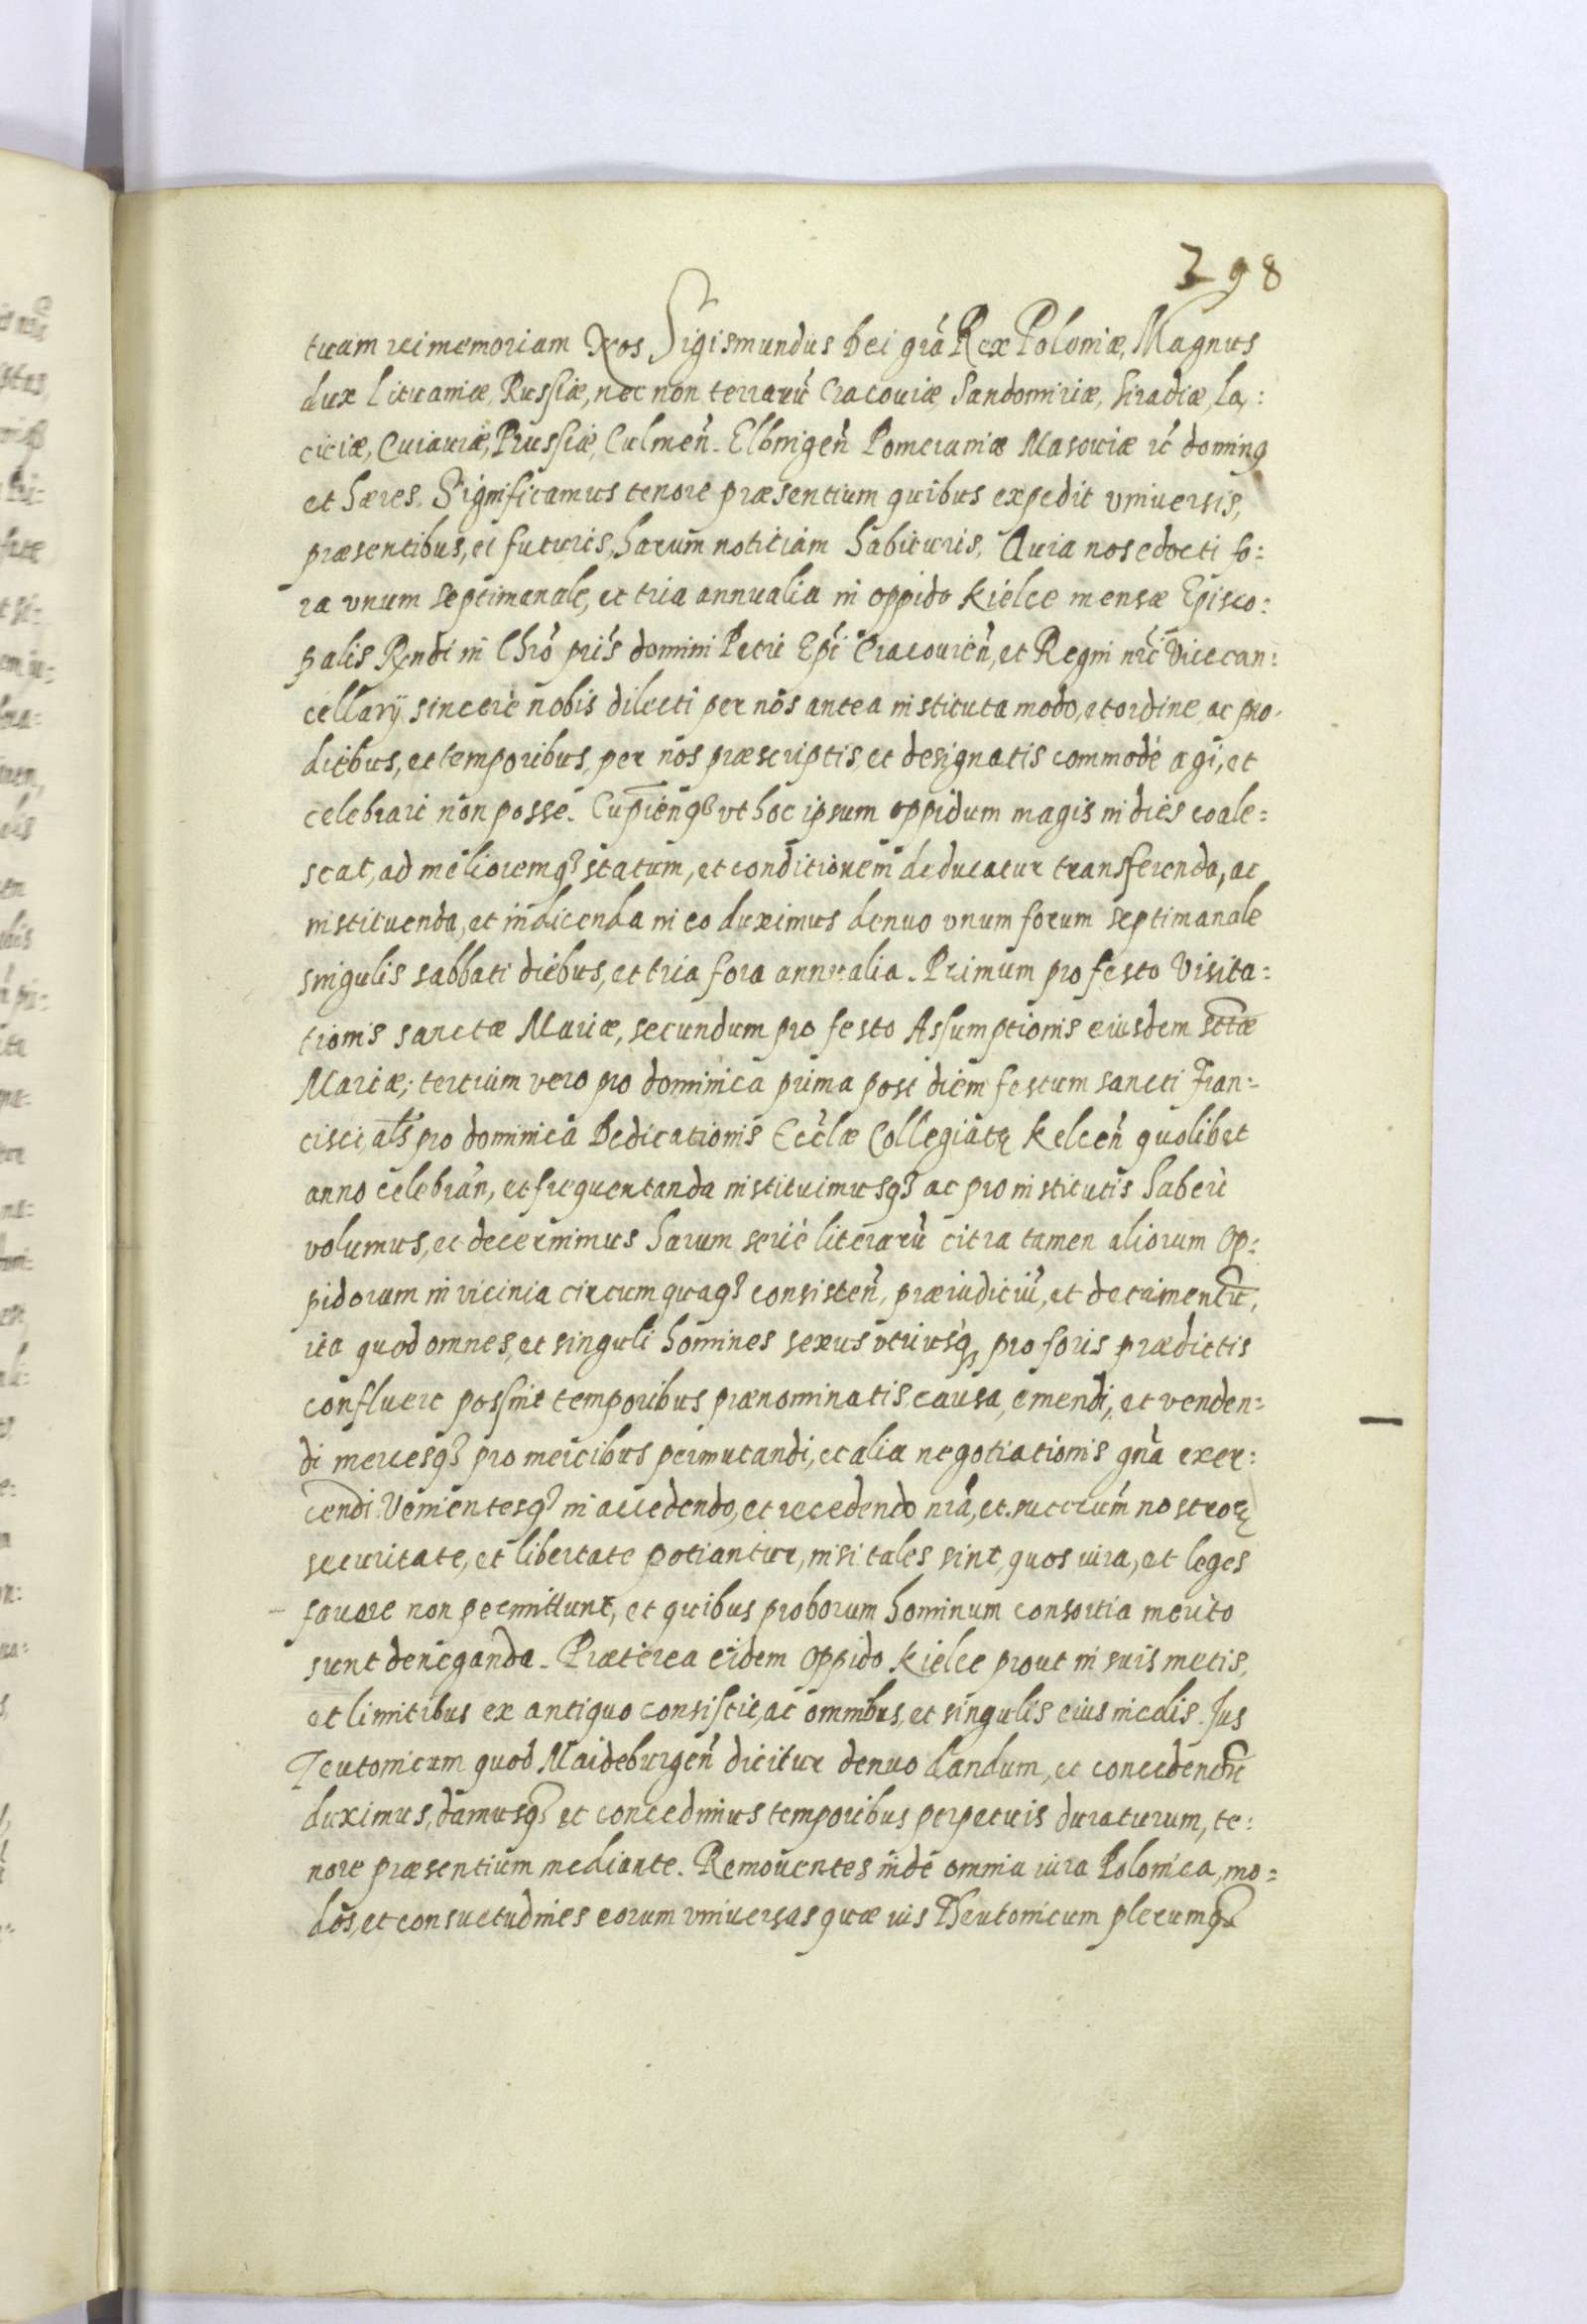 298
tuam rei memoriam Nos Sigismundus Dei grā Rex Poloniæ, Magnus
dux Lituaniæ, Russiæ, nec non terrarū Cracoviæ Sandomiriæ, Siradiæ, La:
ciciæ, Cuiaviæ, Prussiæ, Culmeñ. Elbingeñ Pomeraniæ Masoviæ rc̄ dominꝯ
et hæres. Significamus tenore præsentium quibus expedit vniversis,
præsentibus, et futuris, harum notitiam habituris, Quia nos edocti fo:
ra vnum septimanale, et tria annualia in oppido Kielce mensæ Episco:
palis Rendi in Chrō pris domini Petri Epi Cracovieñ, et Regni nri Vicecan:
cellarij sincerè nobis dilecti per nos antea instituta modo, et ordine, ac pro
diebus, et temporibus, per nos præscriptis, et designatis commodè agi, et
celebrari non posse. Cupienꝗ vt hoc ipsum oppidum magis in diès coale:
scat, ad melioremqꝫ statum, et conditionem deducatur transferenda, ac
instituenda, et indicenda in eo duximus denuo vnum forum septimanale
singulis sabbati diebus, et tria fora annualia. Primum pro festo Visita:
tionis sanctæ Mariæ, secundum pro festo Assumptionis eiusdem sctæ
Mariæ; tertium vero pro dominica prima post diem festum sancti Fran:
cisci, als pro dominica Dedicationis Ecclæ Collegiatę Kelceñ quolibet
anno celebrañ, et frequentanda instituimusqꝫ ac pro institutis haberi
volumus, et decernimus harum serie literarū citra tamen aliorum Op:
pidorum in vicinia circumquaqꝫ consisteñ, præiudiciū, et detrimentū,
ita quod omnes, et singuli homines sexus vtriusqꝫ, pro foris prædictis
confluere possint temporibus prænominatis causa, emendi, et venden:
di mercesqꝫ pro mercibus permutandi, et alia negotiationis gña exer:
cendi. Venientesqꝫ in accedendo, et recedendo nrā, et succrum nostroꝝ
securitate, et libertate potiantur, nisi tales sint, quos iura, et leges
favore non permittunt, et quibus proborum hominum consortia merito
sunt deneganda. Præterea eidem oppido Kielce prout in suis metis,
et limitibus ex antiquo consistit, ac omnibus, et singulis eius incolis. Jus
Teutonicum quod Maideburgeñ dicitur denuo dandum, et concedendū
duximus, damusqꝫ et concedimus temporibus perpetuis duraturum, te:
nore præsentium mediante. Removentes inde omnia iura Polonica, mo:
dos, et consuetudines eorum vniversas quæ ius Theutonicum plerumqꝫ